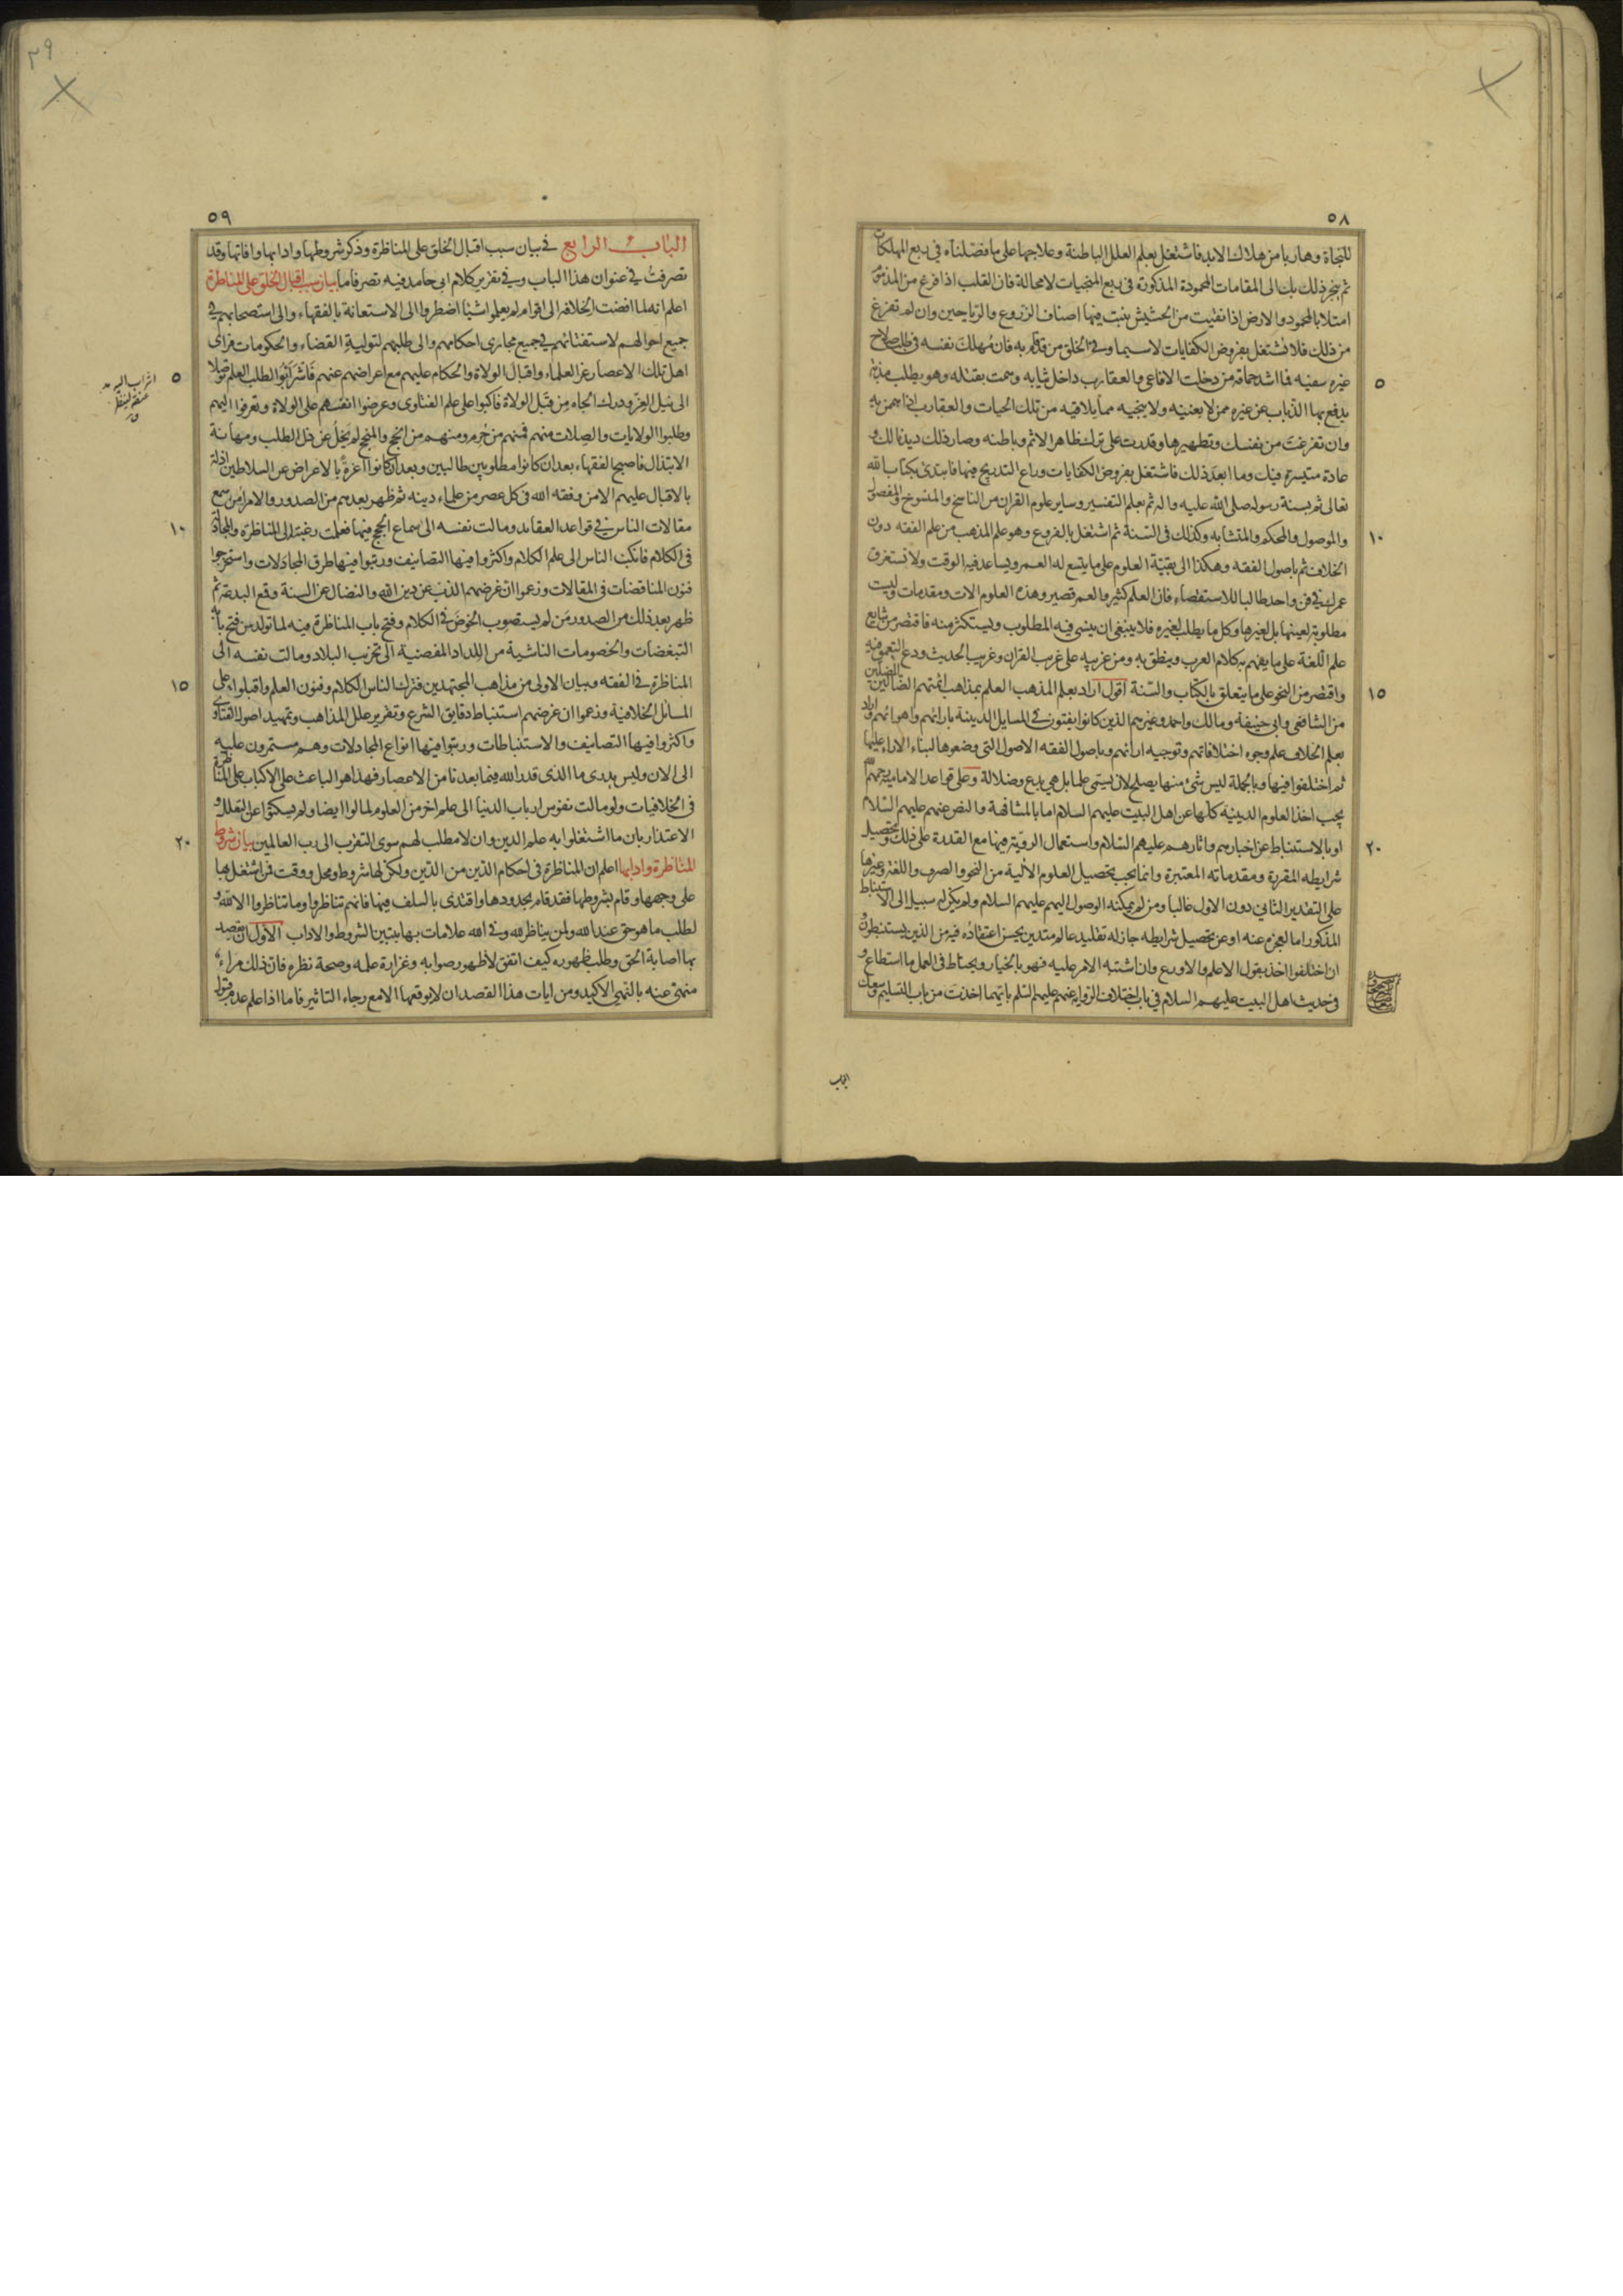 ٥٨
للنجاة وهاربا من هلاك الابد فاشتغل بعلم العلل الباطنة وعلاجها على ما فصلناه فى ربع المهلكات
ثم ينجر ذلك بك الى المقامات المحمودة المذكورة فى ربع المنجيات لا محالة فان القلب اذا فرغ من المذموم
امتلا بالمحمود والارض اذا نقيت من الحشيش ينبت فيها اصناف الزروع والرياحين وان لم تفرغ
من ذلك فلا تشتغل بفروض الكفايات لاسيما وفى الخلق من قد قام به فان مهلك نفسه فى طلب صلاح
غيره سفيه فما اشد حماقة من دخلت الافاعى والعقارب داخل ثيابه وهمت بقتله وهو يطلب مذبة
يدفع بها الذباب عن غيره ممن لا يغنيه ولا ينجيه مما يلاقيه من تلك الحيات والعقارب اذا همن به
وان تفرغت من نفسك وتطهيرها وقدرت على ترك ظاهر الاثم وباطنه وصار ذلك ديدنا لك و
عادة متيسرة فيك وما ابعد ذلك فاشتغل بفروض الكفايات وراع التدريج فيها فابتدئ بكتاب الله
تعالى ثم بسنة رسوله صلى الله عليه واله ثم بعلم التفسير وساير علوم القران من الناسخ والمنسوخ والمفصول
والموصول والمحكم والمتشابه وكذلك فى السنة ثم اشتغل بالفروع وهو علم المذهب من علم الفقه دون
الخلاف ثم باصول الفقه وهكذا الى بقية العلوم على ما يتسع له العمر ويساعد فيه الوقت ولا تستغرق
عمرك فى فن واحد طالبا للاستقصاء فان العلم كثير والعمر قصير وهذه العلوم الات ومقدمات وليست
مطلوبة لعينها بل لغيرها وكل ما يطلب لغيره فلا ينبغى ان ينسى فيه المطلوب ويستكثر منه فاقتصر من شايع
علم اللغة على ما يفهم به كلام العرب وينطق به ومن غريبه على غريب القران وغريب الحديث ودع التعمق فيه
واقتصر من النحو على ما يتعلق بالكتاب والسنة اقول اراد بعلم المذهب العلم بمذاهب ائمتهم الضالين المضلين
من الشافعى وابى حنيفة ومالك واحمد وغيرهم الذين كانوا يفتون فى المسايل الدينية بارائهم واهوائهم واراد
بعلم الخلاف علم وجوه اختلافاتهم وتوجيه ارائهم وباصول الفقه الاصول التى وضعوها لبناء الاراء عليها
ثم اختلفوا فيها وبالجملة ليس شئ منها يصلح لان يسمى علما بل هى بدع وضلالة وعلى قواعد الامامية رحمهم الله
يجب اخذ العلوم الدينية كلها عن اهل البيت عليهم السلام اما بالمشافهة والنص عنهم عليهم السلام
او بالاستنباط عن اخبارهم واثارهم عليهم السلام واستعمال الروية فيها مع القدرة على ذلك وتحصيل
شرايطه المقررة ومقدماته المعتبرة وانما يجب تحصيل العلوم الالية من النحو والصرف واللغة وغيرها
على التقدير الثانى دون الاول غالبا ومن لم يمكنه الوصول اليهم عليهم السلام ولم يكن له سبيل الى الاستنباط
المذكور اما لعجزه عنه او عن تحصيل شرايطه جاز له تقليد عالم متدين يحسن اعتقاده فيه من الذين يستنبطون و
ان اختلفوا اخذ بقول الاعلم والاورع وان اشتبه الامر عليه فهو بالخيار ويحتاط فى العمل ما استطاع و
فى حديث اهل البيت عليهم السلام فى باب اختلاف الرواية عنهم عليهم السلم بايهما اخذت من باب التسليم وسعك
٥
١٠
١٥
٢٠
الباب
٥٩
الباب الرابع فى بيان سبب اقبال الخلق على المناظرة وذكر شروطها وادابها وافاتها وقد
تصرفت فى عنوان هذا الباب وفى تقرير كلام ابى حامد فيه تصرفاما بيان سبب اقبال الخلق على المناظرة
اعلم انه لما افضت الخلافة الى اقوام لم يعلموا شيئا اضطروا الى الاستعانة بالفقهاء والى استصحابهم فى
جميع احوالهم لاستفتائهم فى جميع مجارى احكامهم والى طلبهم لتولية القضاء والحكومات فراى
اهل تلك الاعصار عز العلماء واقبال الولاة والحكام عليهم مع اعراضهم عنهم فاشرأبّوا لطلب العلم توصلا
الى نيل العز ودرك الجاه من قبل الولاة فاكبوا على علم الفتاوى وعرضوا انفسهم على الولاة وتعرفوا اليهم
وطلبوا الولايات والصلات منهم فمنهم من حرم ومنهم من انجح والمنجح لم يخل عن ذل الطلب ومهانة
الابتذال فاصبح الفقهاء بعد ان كانوا مطلوبين طالبين وبعد ان كانوا اعزة بالاعراض عن السلاطين اذلة
بالاقبال عليهم الا من وفقه الله فى كل عصر من علماء دينه ثم ظهر بعدهم من الصدور والامراء من سمع
مقالات الناس فى قواعد العقايد ومالت نفسه الى سماع الحجج فيها فعلمت رغبته الى المناظرة والمجادلة
فى الكلام فانكبت الناس الى علم الكلام واكثروا فيها التصانيف ورتبوا فيها طرق المجادلات واستخرجوا
فنون المناقضات فى المقالات وزعموا ان غرضهم الذب عن دين الله والنضال عن السنة وقمع البدعة ثم
ظهر بعد ذلك من الصدور من لم يستصوب الخوض فى الكلام وفتح باب المناظرة فيه لما تولد من فتح بابه
التبغضات والخصومات الناشية من اللداد المفضية الى تخريب البلاد ومالت نفسه الى
المناظرة فى الفقه وبيان الاولى من مذاهب المجتهدين فترك الناس الكلام وفنون العلم واقبلوا على
المسائل الخلافية وزعموا ان غرضهم استنباط دقايق الشرع وتقرير علل المذاهب وتمهيد اصول الفتاوى
واكثروا فيها التصانيف والاستنباطات ورتبوا فيها انواع المجادلات وهم مستمرون عليه
الى الان وليس يدرى ما الذى قدر الله فيما بعدنا من الاعصار فهذا هو الباعث على الاكباب على المناظرة
فى الخلافيات ولو مالت نفوس ارباب الدنيا الى علم اخر من العلوم لمالوا ايضا ولم يسكتوا عن التعلل و
الاعتذار بان ما اشتغلوا به علم الدين وان لا مطلب لهم سوى التقرب الى رب العالمين بيان شروط
المناظرة وادابها اعلم ان المناظرة فى احكام الدين من الدين ولكن لها شروط ومحل ووقت فمن اشتغل بها
على وجهها وقام بشروطها فقد قام بحدودها واقتدى بالسلف فيها فانهم تناظروا وما تناظروا الا لله و
لطلب ما هو حق عند الله ولمن يناظر لله وفى الله علامات بها يتبين الشروط والاداب الاول ان يقصد
بها اصابة الحق وطلب ظهوره كيف اتفق لا ظهور صوابه وغزارة علمه وصحة نظره فان ذلك مراء
منهى عنه بالنهى الاكيد ومن ايات هذا القصد ان لا يوقعها الا مع رجاء التاثير فاما اذا علم عدم قبول
٥
١٠
١٥
٢٠
٢٩